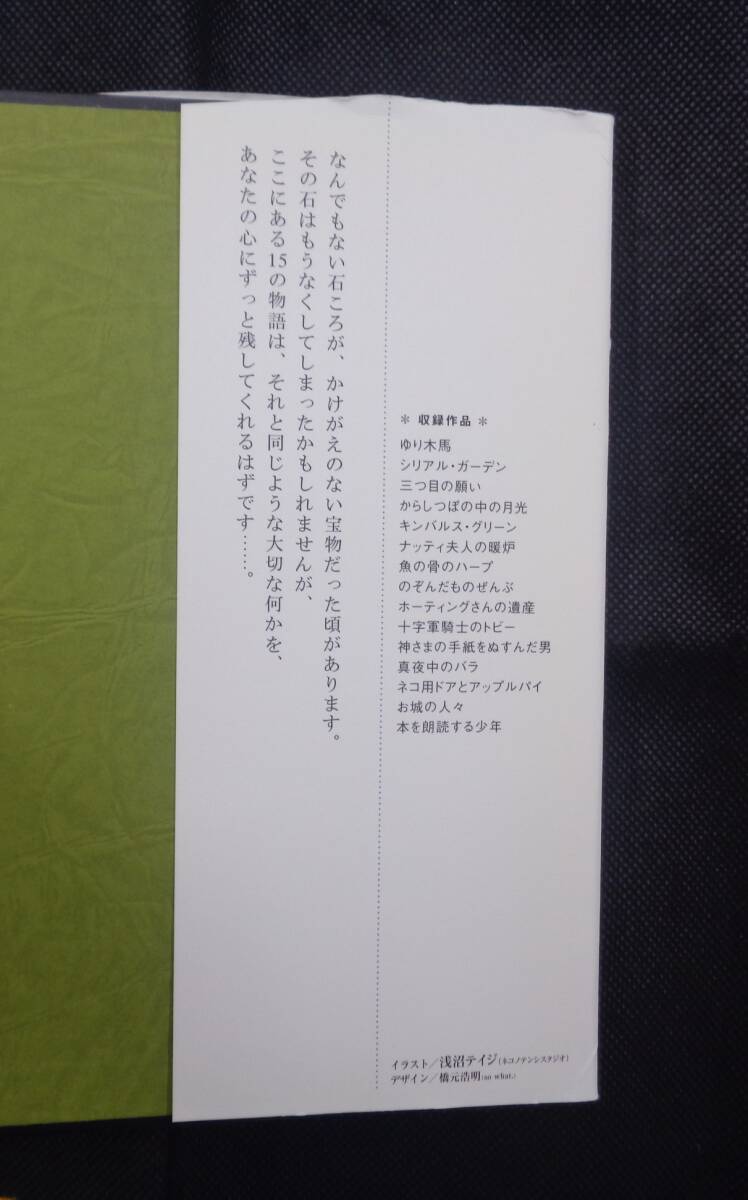 なんでもない石ころが、かけがえのない宝物だった頃があります。
その石はもうなくしてしまったかもしれませんが、
ここにある15の物語は、それと同じような大切な何かを、
あなたの心にずっと残してくれるはずです……。
＊ 収録作品 ＊
ゆり木馬
シリアル・ガーデン
三つ目の願い
からしつぼの中の月光
キンバルス・グリーン
ナッティ夫人の暖炉
魚の骨のハープ
のぞんだものぜんぶ
ホーティングさんの遺産
十字軍騎士のトビー
神さまの手紙をぬすんだ男
真夜中のバラ
ネコ用ドアとアップルパイ
お城の人々
本を朗読する少年
イラスト／浅沼テイジ(ネコノテンシスタジオ)
デザイン／橋元浩明(so what.)